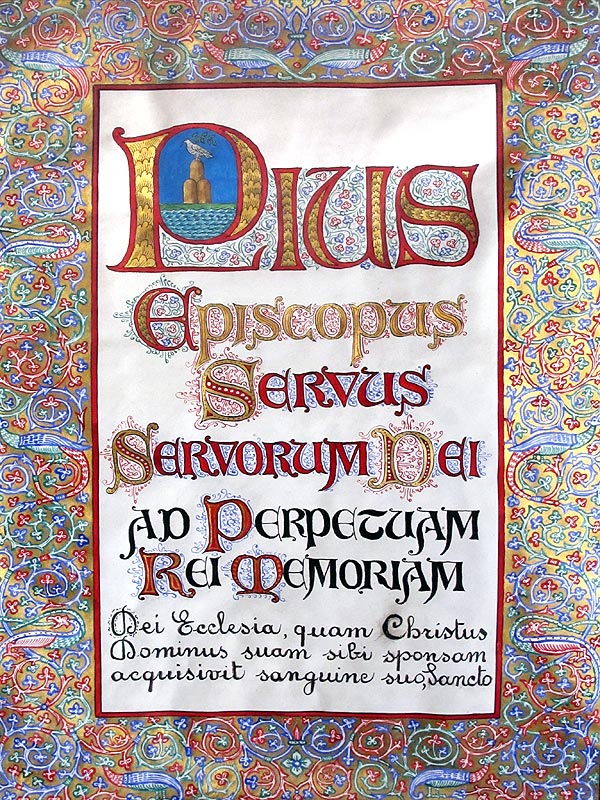 Pius
Episcopus
Servus
Servorum Dei
ad Perpetuam
Rei Memoriam
Dei Ecclesia, quam Christus
Dominus suam sibi sponsam
acquisivit sanguine suo, Sancto